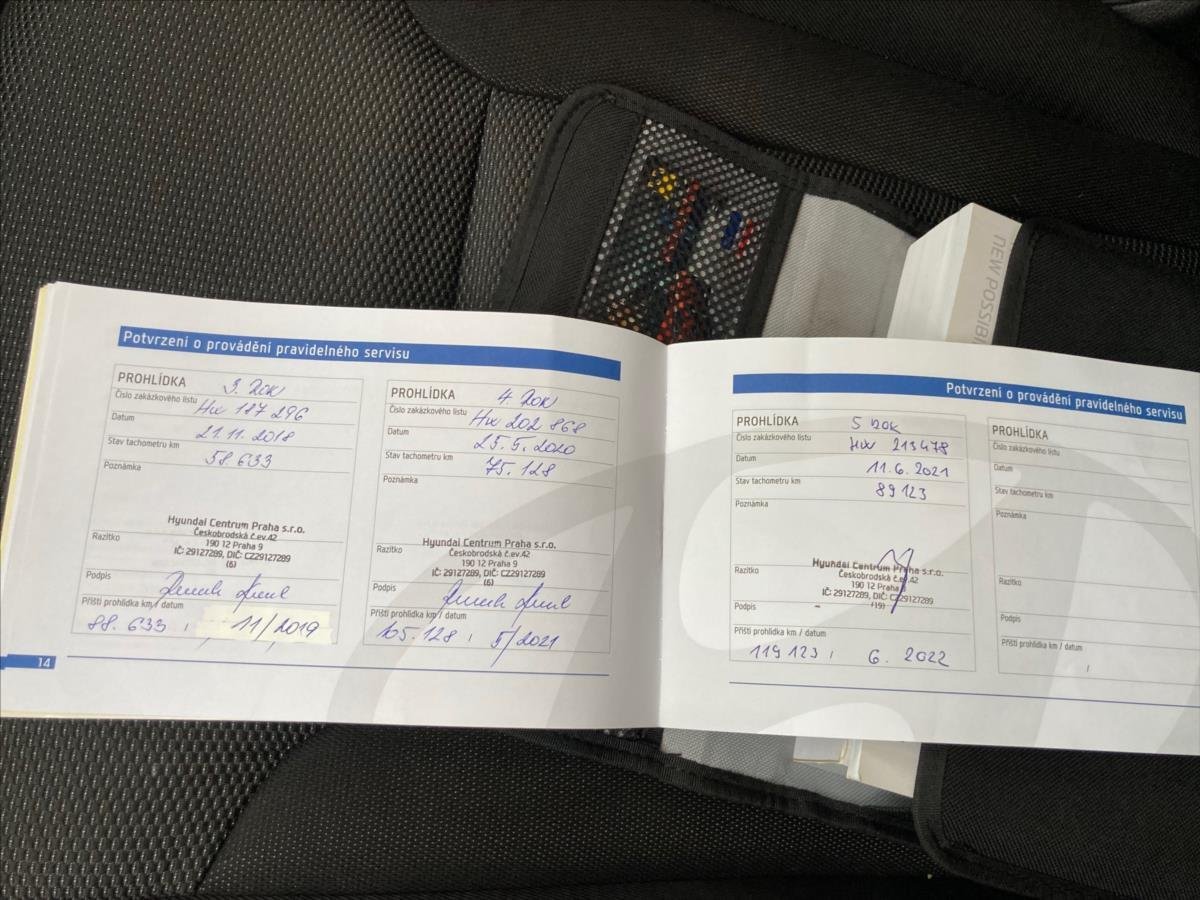 NEW POSSIBI
Potvrzení o provádění pravidelného servisu
PROHLÍDKA 3. ROK
Číslo zakázkového listu HW 187 296
Datum 21.11.2018
Stav tachometru km 58.633
Poznámka
Razítko
Hyundai Centrum Praha s.r.o.
Českobrodská č.ev.42
190 12 Praha 9
IČ: 29127289, DIČ: CZ29127289
(6)
Podpis
Příští prohlídka km / datum
88.633 / 11/2019
14
PROHLÍDKA 4 ROK
Číslo zakázkového listu HW 202 868
Datum 25.5.2020
Stav tachometru km 75.128
Poznámka
Razítko
Hyundai Centrum Praha s.r.o.
Českobrodská č.ev.42
190 12 Praha 9
IČ: 29127289, DIČ: CZ29127289
(6)
Podpis
Příští prohlídka km / datum
105.128 / 5/2021
Potvrzení o provádění pravidelného servisu
PROHLÍDKA 5 ROK
Číslo zakázkového listu HW 213478
Datum 11.6.2021
Stav tachometru km 89123
Poznámka
Razítko
Hyundai Centrum Praha s.r.o.
Českobrodská č.ev.42
190 12 Praha 9
IČ: 29127289, DIČ: CZ29127289
(19)
Podpis
Příští prohlídka km / datum
119 123 / 6. 2022
PROHLÍDKA
Číslo zakázkového listu
Datum
Stav tachometru km
Poznámka
Razítko
Podpis
Příští prohlídka km / datum
/